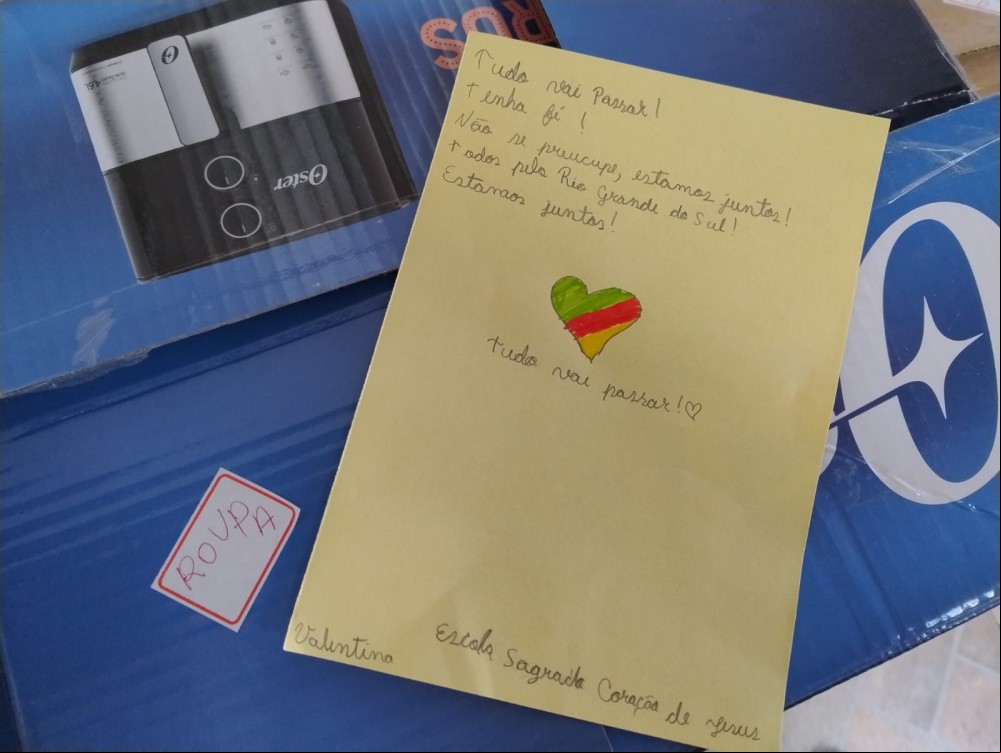 ROS
Oster
4,6L
Tudo vai Passar!
Tenha fé!
Não se preucupe, estamos juntos!
Todos pelo Rio Grande do Sul!
Estamos juntos!
Tudo vai passar!♡
ROUPA
Valentina
Escola Sagrado Coração de Jesus